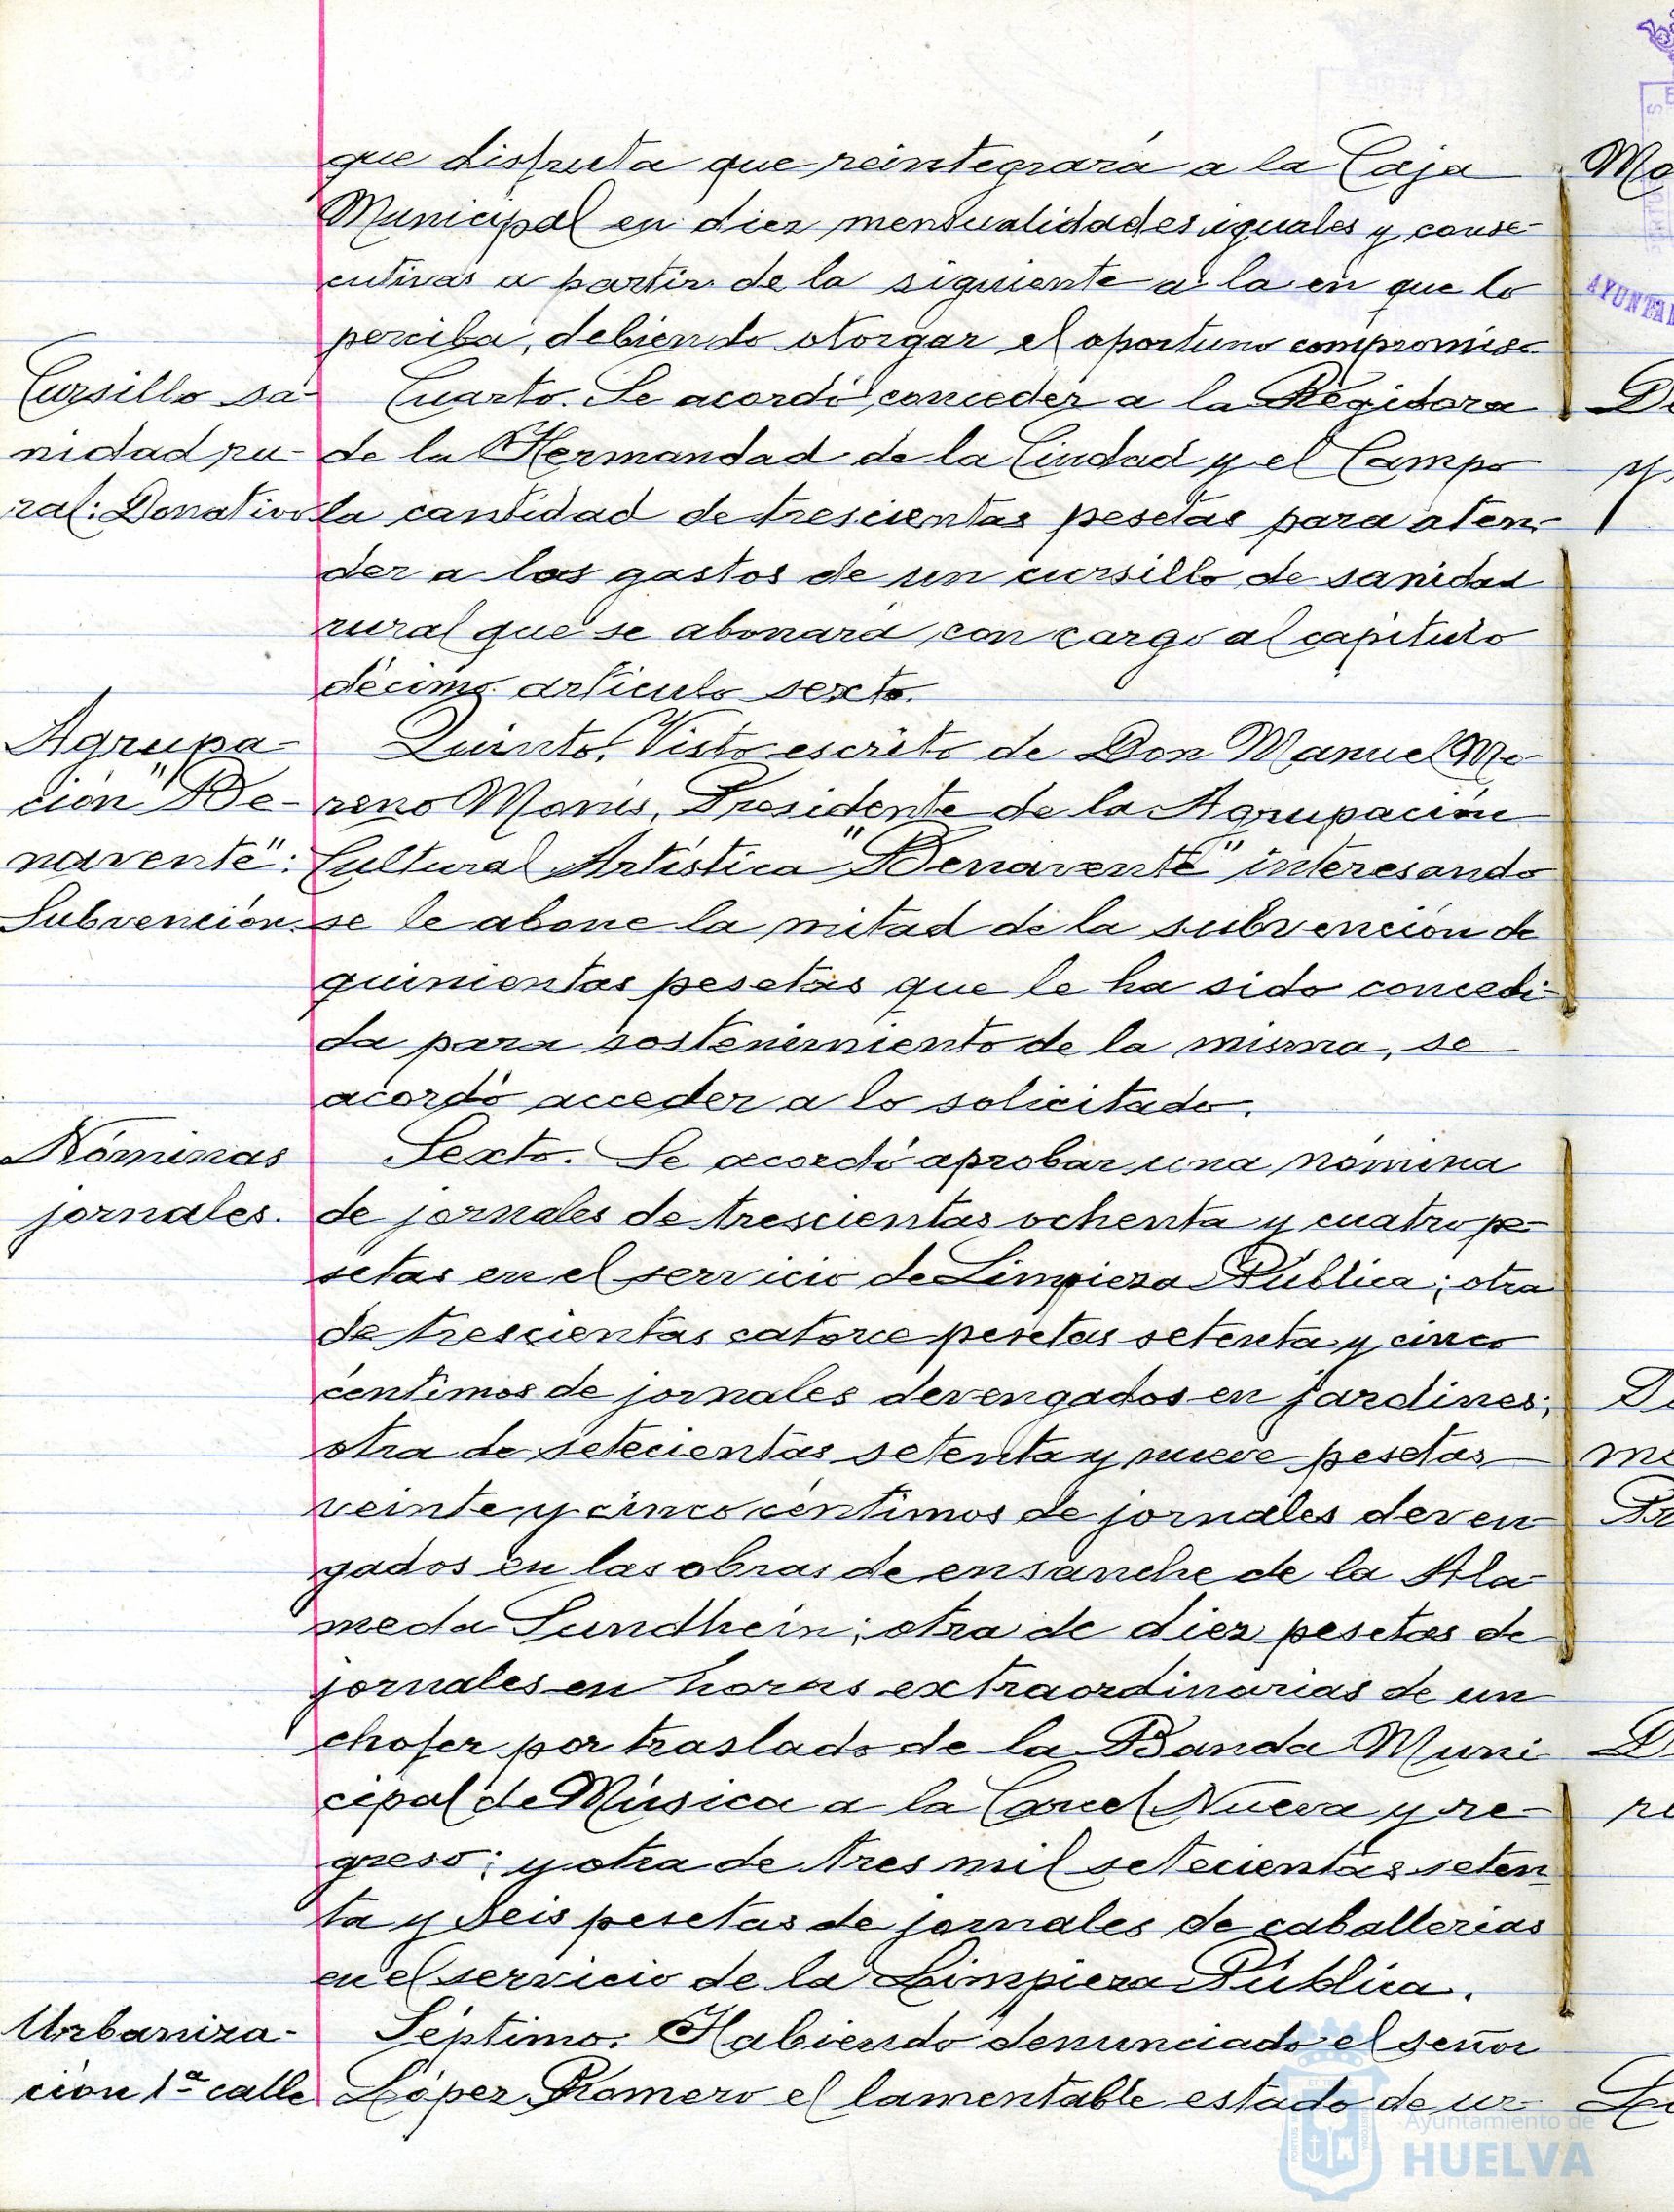 que disfruta que reintegrará a la Caja
Municipal en diez mensualidades iguales y conse-
cutivas a partir de la siguiente a la en que lo
perciba, debiendo otorgar el oportuno compromiso.
Cursillo sa-
nidad ru-
ral: Donativo
Cuarto. Se acordó conceder a la Regidora
de la Hermandad de la Ciudad y el Campo
la cantidad de trescientas pesetas para aten-
der a los gastos de un cursillo de sanidad
rural que se abonará con cargo al capítulo
décimo artículo sexto.
Agrupa-
ción "Be-
navente":
Subvención.
Quinto. Visto escrito de Don Manuel Mo-
reno Monís, Presidente de la Agrupación
Cultural Artística "Benavente" interesando
se le abone la mitad de la subvención de
quinientas pesetas que le ha sido concedi-
da para sostenimiento de la misma, se
acordó acceder a lo solicitado.
Nóminas
jornales.
Sexto. Se acordó aprobar una nómina
de jornales de trescientas ochenta y cuatro pe-
setas en el servicio de Limpieza Pública; otra
de trescientas catorce pesetas setenta y cinco
céntimos de jornales devengados en jardines;
otra de setecientas setenta y nueve pesetas
veinte y cinco céntimos de jornales deven-
gados en las obras de ensanche de la Ala-
meda Sundhein; otra de diez pesetas de
jornales en horas extraordinarias de un
chofer por traslado de la Banda Muni-
cipal de Música a la Carcel Nueva y re-
greso; y otra de tres mil setecientas seten-
ta y seis pesetas de jornales de caballerias
en el servicio de la Limpieza Pública.
Urbaniza-
ción 1ª calle
Séptimo. Habiendo denunciado el señor
López Romero el lamentable estado de ur-
Ayuntamiento de
HUELVA